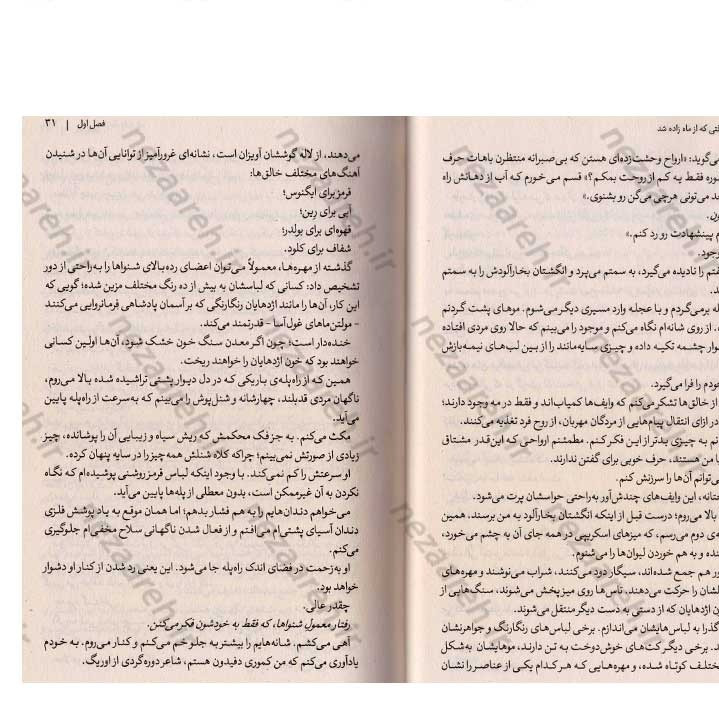 لتی که از ماه زاده شد
می‌گوید: «ارواح وحشت‌زده‌ای هستن که بی‌صبرانه منتظرن باهات حرف
وره فقط یه کم از روحت بمکم؟» قسم می‌خورم که آب از دهانش راه
می‌تونی هرچی می‌گن رو بشنوی.»
پیشنهادت رو رد کنم.»
را نادیده می‌گیرد، به سمتم می‌پرد و انگشتان بخارآلودش را به سمتم
برمی‌گردم و با عجله وارد مسیری دیگر می‌شوم. موهای پشت گردنم
از روی شانه‌ام نگاه می‌کنم و موجود را می‌بینم که حالا روی مردی افتاده
چشمه تکیه داده و چیزی سایه‌مانند را از بین لب‌های نیمه‌بازش
خودم را فرا می‌گیرد.
از خالق‌ها تشکر می‌کنم که وایف‌ها کمیاب‌اند و فقط در مه وجود دارند؛
در ازای انتقال پیام‌هایی از مردگان مهربان، از روح فرد تغذیه می‌کنند.
به چیزی بدتر از این فکر کنم. مطمئنم ارواحی که این‌قدر مشتاق
با من هستند، حرف خوبی برای گفتن ندارند.
می‌توانم آن‌ها را سرزنش کنم.
این وایف‌های چندش‌آور به‌راحتی حواسشان پرت می‌شود.
بالا می‌روم؛ درست قبل از اینکه انگشتان بخارآلود به من برسند. همین
دوم می‌رسم، که میزهای اسکریپی در همه جای آن به چشم می‌خورد،
و به هم خوردن لیوان‌ها را می‌شنوم.
هم جمع شده‌اند، سیگار دود می‌کنند، شراب می‌نوشند و مهره‌های
را حرکت می‌دهند. تاس‌ها روی میز پخش می‌شوند، سنگ‌هایی از
اژدهایان که از دستی به دست دیگر منتقل می‌شوند.
گذرا به لباس‌هایشان می‌اندازم. برخی لباس‌های رنگارنگ و جواهرنشان
برخی دیگر کت‌های خوش‌دوخت به تن دارند، موهایشان به‌شکل
مختلف کوتاه شده، و مهره‌هایی که هرکدام یکی از عناصر را نشان
فصل اول | ۳۱
می‌دهند، از لاله گوششان آویزان است، نشانه‌ای غرورآمیز از توانایی آن‌ها در شنیدن
آهنگ‌های مختلف خالق‌ها:
قرمز برای ایگنوس؛
آبی برای رین؛
قهوه‌ای برای بولدر؛
شفاف برای کلود.
گذشته از مهره‌ها، معمولاً می‌توان اعضای رده‌بالای شنواها را به‌راحتی از دور
تشخیص داد: کسانی که لباسشان به بیش از ده رنگ مختلف مزین شده؛ گویی که
این کار، آن‌ها را مانند اژدهایان رنگارنگی که بر آسمان پادشاهی فرمانروایی می‌کنند
- مولتن‌ماهای غول‌آسا - قدرتمند می‌کند.
خنده‌دار است؛ چون اگر معدن سنگ خون خشک شود، آن‌ها اولین کسانی
خواهند بود که خون اژدهایان را خواهند ریخت.
همین که از راه‌پله‌ی باریکی که در دل دیوار پشتی تراشیده شده بالا می‌روم،
ناگهان مردی قدبلند، چهارشانه و شنل‌پوش را می‌بینم که به‌سرعت از راه‌پله پایین
می‌آید.
مکث می‌کنم. به جز فک محکمش که ریش سیاه و زیبایی آن را پوشانده، چیز
زیادی از صورتش نمی‌بینم؛ چراکه کلاه شنلش همه‌چیز را در سایه پنهان کرده.
او سرعتش را کم نمی‌کند. با وجود اینکه لباس قرمز روشنی پوشیده‌ام که نگاه
نکردن به آن غیرممکن است، بدون معطلی از پله‌ها پایین می‌آید.
می‌خواهم دندان‌هایم را به هم فشار بدهم؛ اما همان موقع به یاد پوشش فلزی
دندان آسیای پشتی‌ام می‌افتم و از فعال شدن ناگهانی سلاح مخفی‌ام جلوگیری
می‌کنم.
او به‌زحمت در فضای اندک راه‌پله جا می‌شود. این یعنی رد شدن از کنار او دشوار
خواهد بود.
چقدر عالی.
رفتار معمول شنواها، که فقط به خودشون فکر می‌کنن.
آهی می‌کشم. شانه‌هایم را بیشتر به جلو خم می‌کنم و کنار می‌روم. به خودم
یادآوری می‌کنم که من کموری دفیدون هستم، شاعر دوره‌گردی از اوریگ.
nezaareh.ir